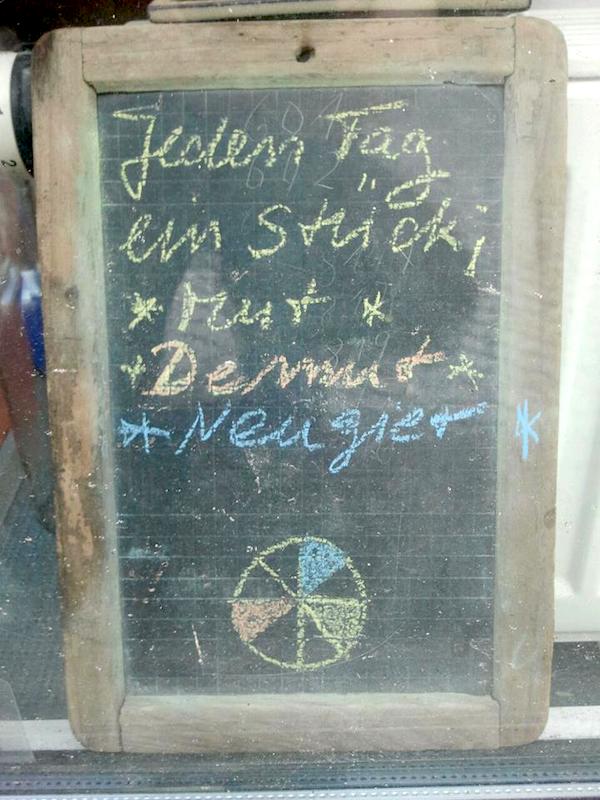 Jeden Tag
ein Stück;
* Mut *
* Demut *
* Neugier *
2